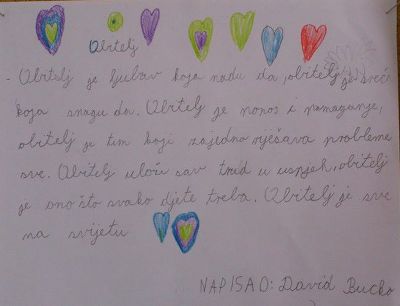 Obitelj
- Obitelj je ljubav koja nadu da, obitelj je sreća
koja snagu da. Obitelj je ponos i pomaganje,
obitelj je tim koji zajedno rješava probleme
sve. Obitelj uloži sav trud u uspjeh, obitelj
je ono što svako djete treba. Obitelj je sve
na svijetu
NAPISAO: David Bucko